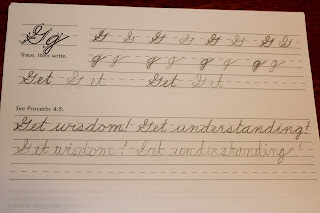 Gg G G G G G G G G
Trace, then write. g g g g g g g g
Get Get Get Get
See Proverbs 4:5.
Get wisdom! Get understanding!
Get wisdom! Get understanding!